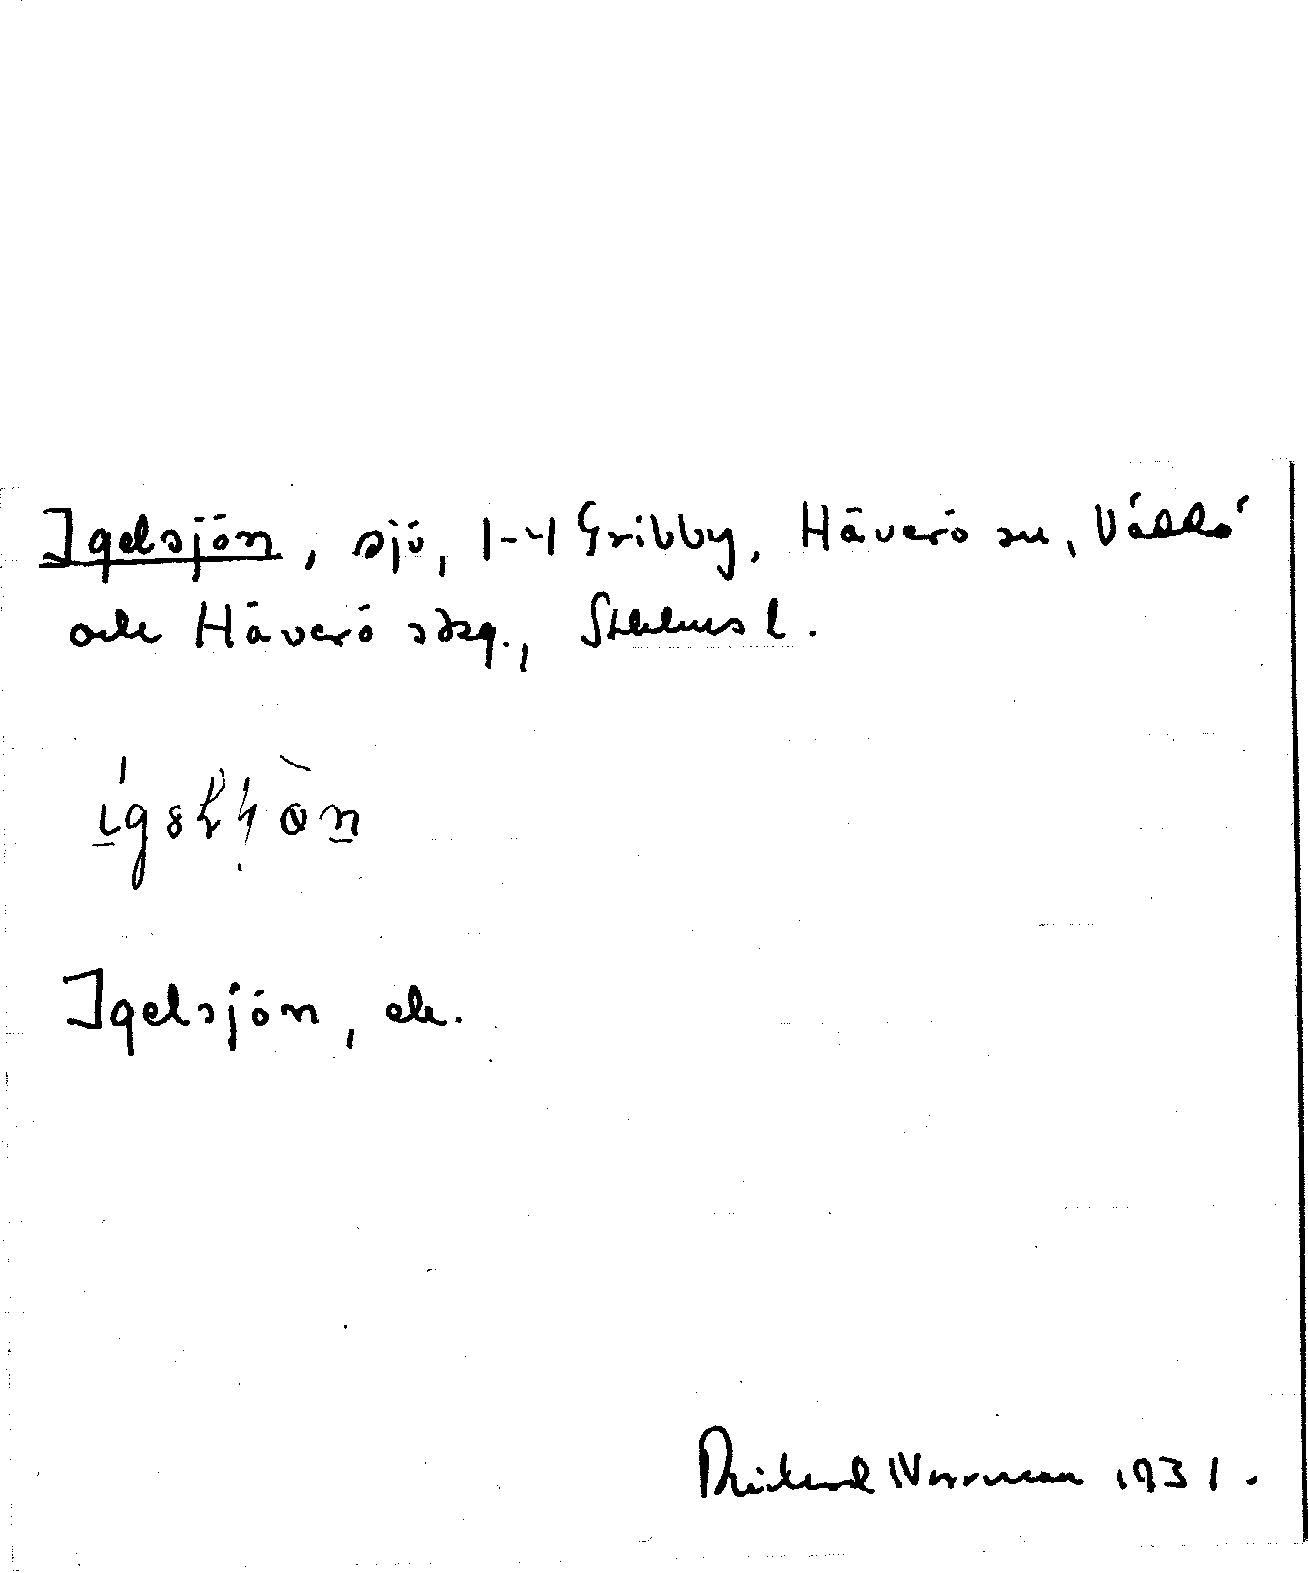 Igelsjön, sjö, 1-4 Gribby, Häverö sn, Väddö
och Häverö skg., Sthlms l.
Igelsjön, ek.
Rickard Norrman 1931.